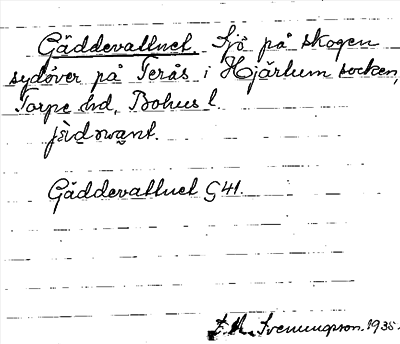 Gäddevattnet. Sjö på skogen
sydöver på Terås i Hjärtum socken,
Torpe hd, Bohus l.
Gäddevattnet G 41.
Svenungsson. 1935.